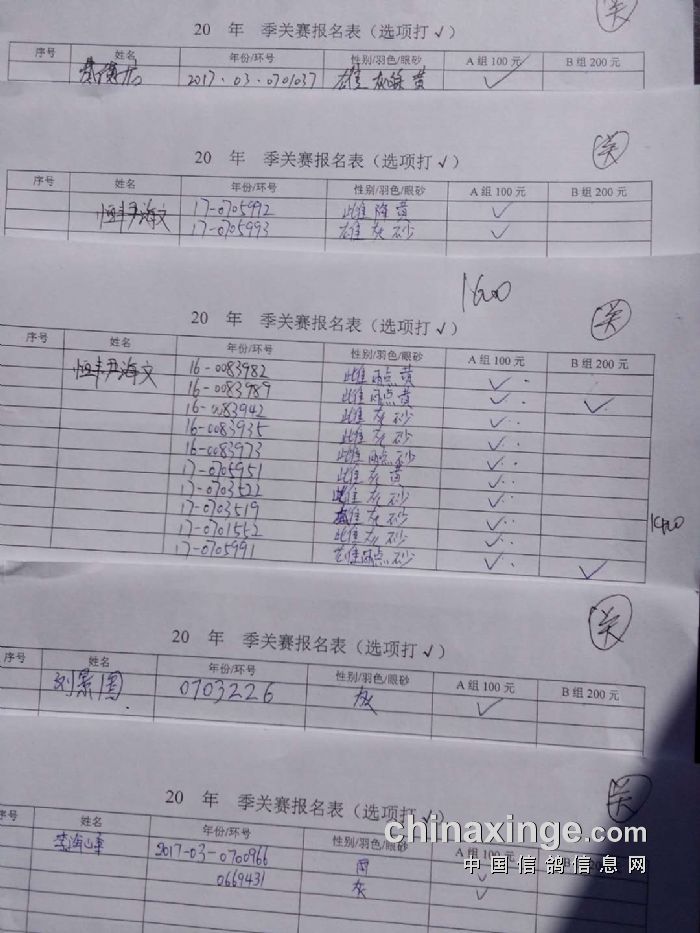 关
20 年 季关赛报名表（选项打√）
序号 姓名 年份/环号 性别/羽色/眼砂 A 组 100 元 B 组 200 元
2017.03.0701037 雄 黄 √
关
20 年 季关赛报名表（选项打√）
序号 姓名 年份/环号 性别/羽色/眼砂 A 组 100 元 B 组 200 元
恒丰尹海文 17-0705992 雌 降 黄 √
17-0705993 雄 灰 砂 √
1600
关
20 年 季关赛报名表（选项打√）
序号 姓名 年份/环号 性别/羽色/眼砂 A 组 100 元 B 组 200 元
恒丰尹海文 16-0083982 雌 雨点 黄 √
16-0083989 雌 雨点 黄 √ √
16-0083942 雌 灰 砂 √
16-0083935 雌 灰 砂 √
16-0083973 雌 雨点 砂 √
17-0705951 雌 灰 黄 √
17-0703522 雌 灰 砂 √
17-0703519 雄 灰 砂 √
17-0701552 雌 灰 砂 √
17-0705991 雄 雨点 砂 √ √
1400
关
20 年 季关赛报名表（选项打√）
序号 姓名 年份/环号 性别/羽色/眼砂 A 组 100 元 B 组 200 元
刘景国 0703226 灰 √
关
20 年 季关赛报名表（选项打√）
序号 姓名 年份/环号 性别/羽色/眼砂 A 组 100 元 B 组 200 元
李海峰 2017-03-0700966 雨 √
0669431 灰 √
chinaxinge.com
中国信鸽信息网